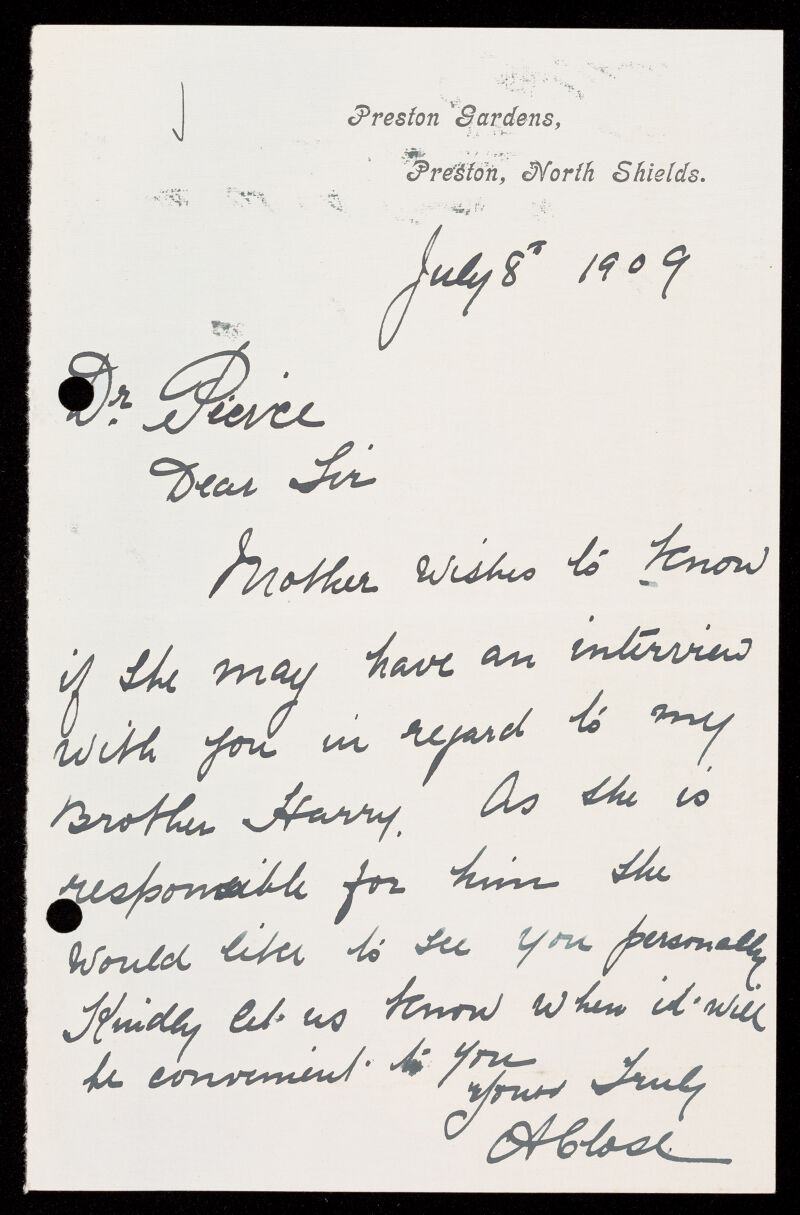 Preston Gardens,
Preston, North Shields.
July 8th 1909
Dr. Pierce
Dear Sir
Mother wishes to know
if she may have an interview
with you in regard to my
Brother Harry. As she is
responsible for him she
would like to see you personally
Kindly let us know when it will
be convenient to you
Yours Truly
A Close